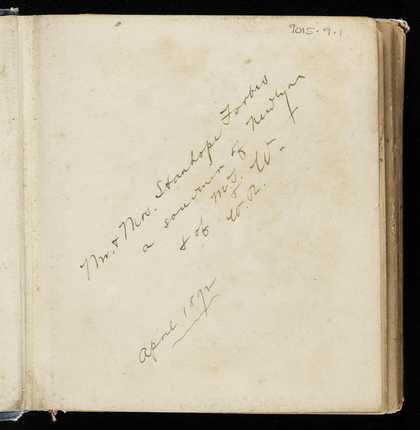 9015.9.1
Mr. & Mrs. Stanhope Forbes
a souvenir of Newlyn
& of M. J. W.
& W. R.
April 1892